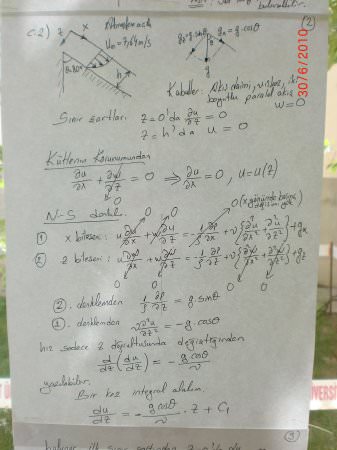 (2)
C.2)
z
x
Atmosfere açık
g_z=g.sinθ
g_x=g.cosθ
g
h
Kabuller: Akış daimi, viskoz, iki
boyutlu paralel akış
w=0
Sınır şartları: z=0'da ∂u/∂z = 0
z=h'da u = 0
Kütlenin Korunumundan
∂u/∂x + ∂w/∂z = 0 ⇒ ∂u/∂x = 0, u=u(z)
0
N-S denk.
0 0 0 (x yönünde basınç
① x bileşeni: u ∂u/∂x + w ∂u/∂z = -1/ρ ∂p/∂x + ν{∂²u/∂x² + ∂²u/∂z²} + g_x
② z bileşeni: u ∂w/∂x + w ∂w/∂z = -1/ρ ∂p/∂z + ν{∂²w/∂x² + ∂²w/∂z²} + g_z
0 0 0 0
②. denklemden 1/ρ ∂p/∂z = g.sinθ
①. denklemden ν ∂²u/∂z² = -g.cosθ
hız sadece z doğrultusunda değiştiğinden
d/dz (du/dz) = - g cosθ/ν
yazılabilir.
Bir kez integral alalım.
du/dz = - g cosθ/ν . z + C₁
(3)
30/6/2010